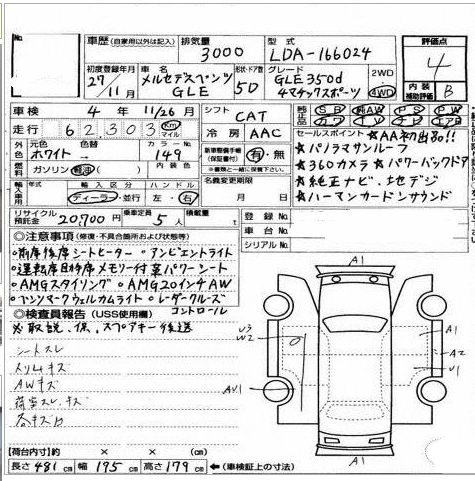 車歴 (自家用以外は記入) 排気量 3000 型式 LDA-166024 評価点 4
初度登録年月 27/11月 車名 メルセデスベンツ GLE 形状・ドア数 5D グレード GLE350d 4マチックスポーツ 2WD 4WD 内装補助評価 B
車検 4年11/26月 シフト CAT 純正品 SR AW PS PW
走行 62,303 Km マイル 冷房 AAC カワ TV ナビ エアB
外色 色替 カラーNo. 内装色 新車整備手帳 (保証書付) 有・無 セールスポイント ★AA初出品!!
ホワイト→ 149 ※書類と一緒に保管下さい。 ★パノラマサンルーフ
燃料 ガソリン 軽油 ( ) 名義変更期限 ★360カメラ★パワーバックドア
輸入車用 年式 輸入区分 ハンドル ★純正ナビ、地デジ
ディーラー・並行 左・右 月 日 ★ハーマンカードンサウンド
リサイクル預託金 20,700円 乗車定員 5人 積載量 t 登録No.
車台No.
シリアルNo.
◎注意事項 (修復・不具合箇所および状態等)
○前席後席シートヒーター ○アンビエントライト
○運転席助手席メモリー付革パワーシート
○AMGスタイリング ○AMG20インチAW
○ブランドマークウェルカムライト ○レーダークルーズコントロール
◎検査員報告 (USS使用欄)
※取説、保、スペアキー後送
シートスレ
AWキズ
荷室スレ、キズ
【荷台内寸】約 × × (cm)
長さ 481cm 幅 195cm 高さ 179cm ←(車検証上の寸法)
A1
W3
W2
A1
A2
U1
AU1
A1